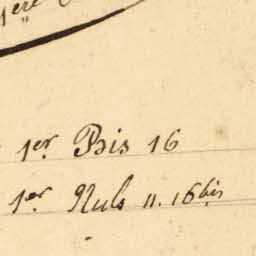 1ère
1er. Bis 16
1er Nuls 11. 16bis